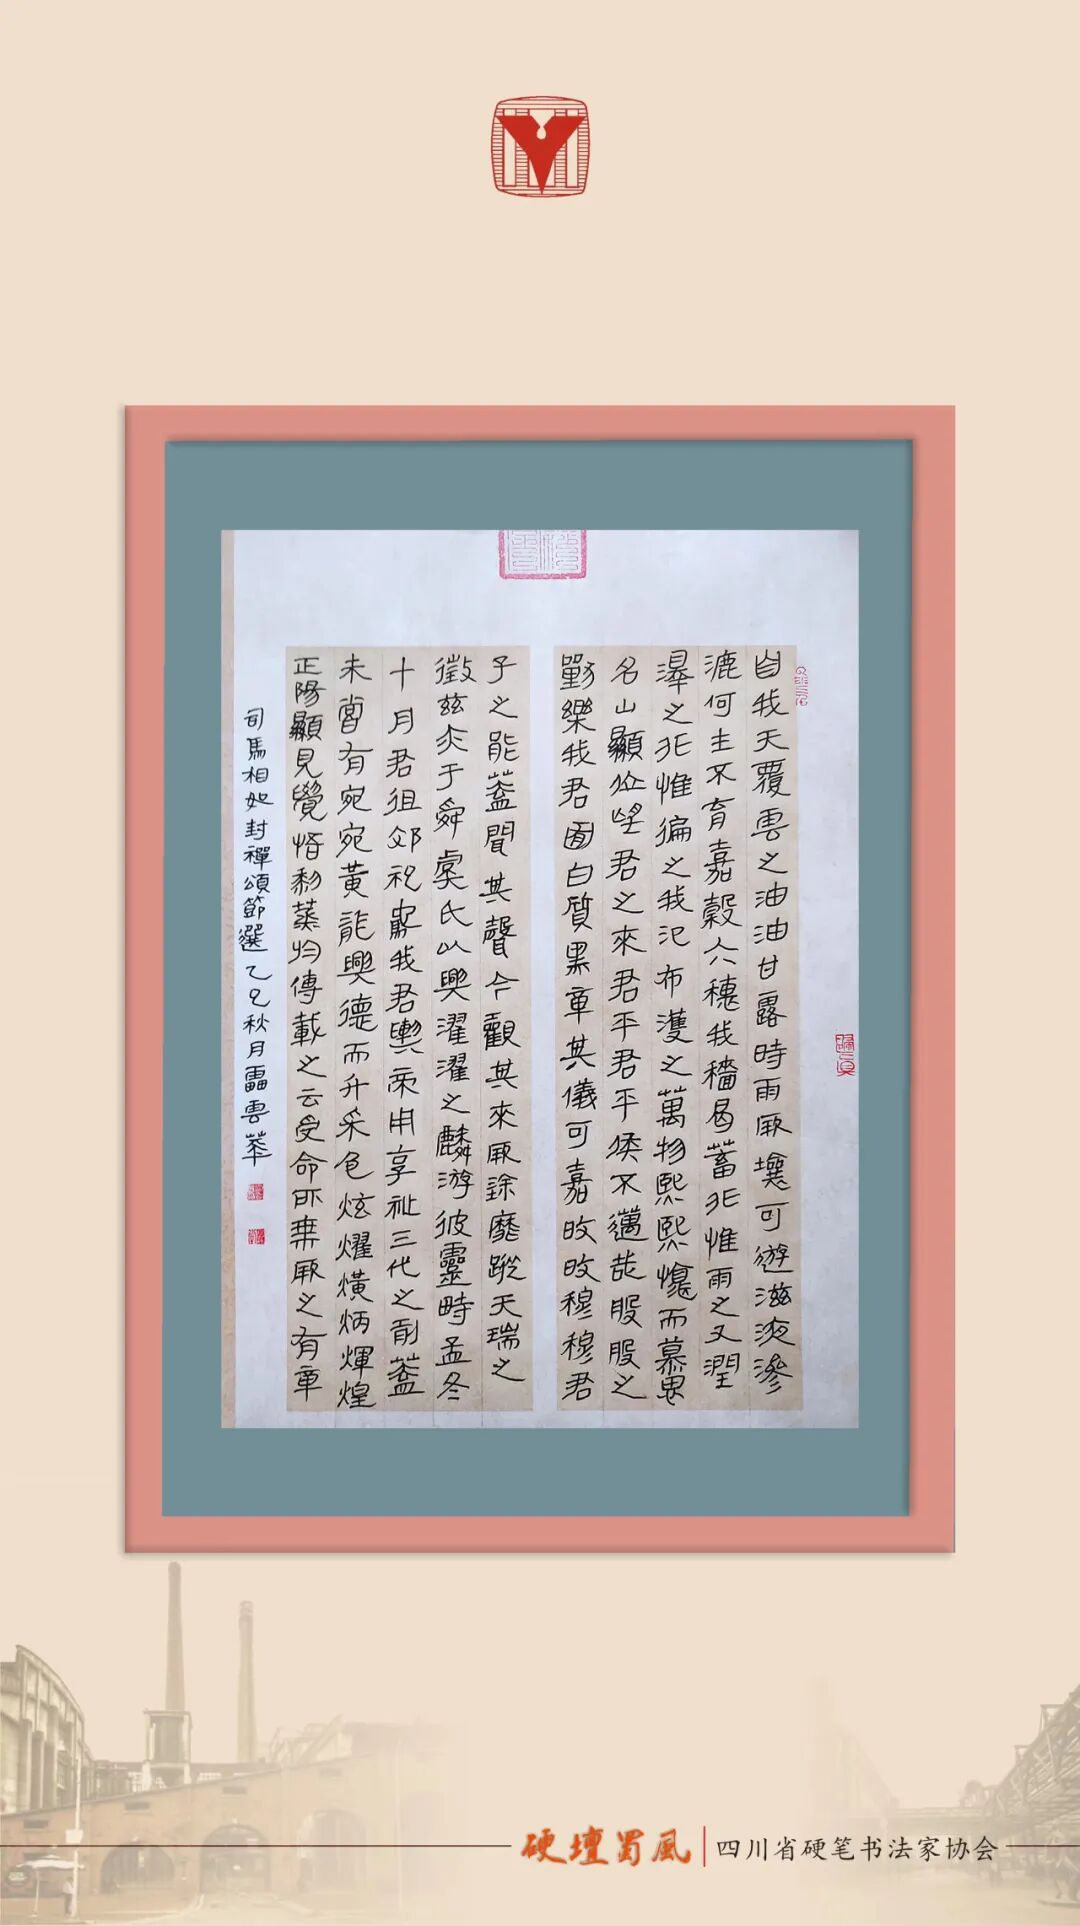 自我天覆雲之油油甘露時雨厥壤可遊滋液滲
漉何生不育嘉穀六穗我穡曷蓄非惟雨之又潤
澤之非惟徧之我氾布濩之萬物熙熙懷而慕思
名山顯位望君之來君乎君乎侯不邁哉般般之
獸樂我君囿白質黑章其儀可嘉旼旼穆穆君
子之能蓋聞其聲今觀其來厥塗靡蹤天瑞之
徵茲亦于舜虞氏以興濯濯之麟游彼靈畤孟冬
十月君徂郊祀馳我君輿帝用享祉三代之前蓋
未嘗有宛宛黃龍興德而升采色炫燿熿炳煇煌
正陽顯見覺悟黎蒸於傳載之云受命所乘厥之有章
司馬相如封禪頌節選乙巳秋月靁雲華
硬壇蜀風
四川省硬笔书法家协会